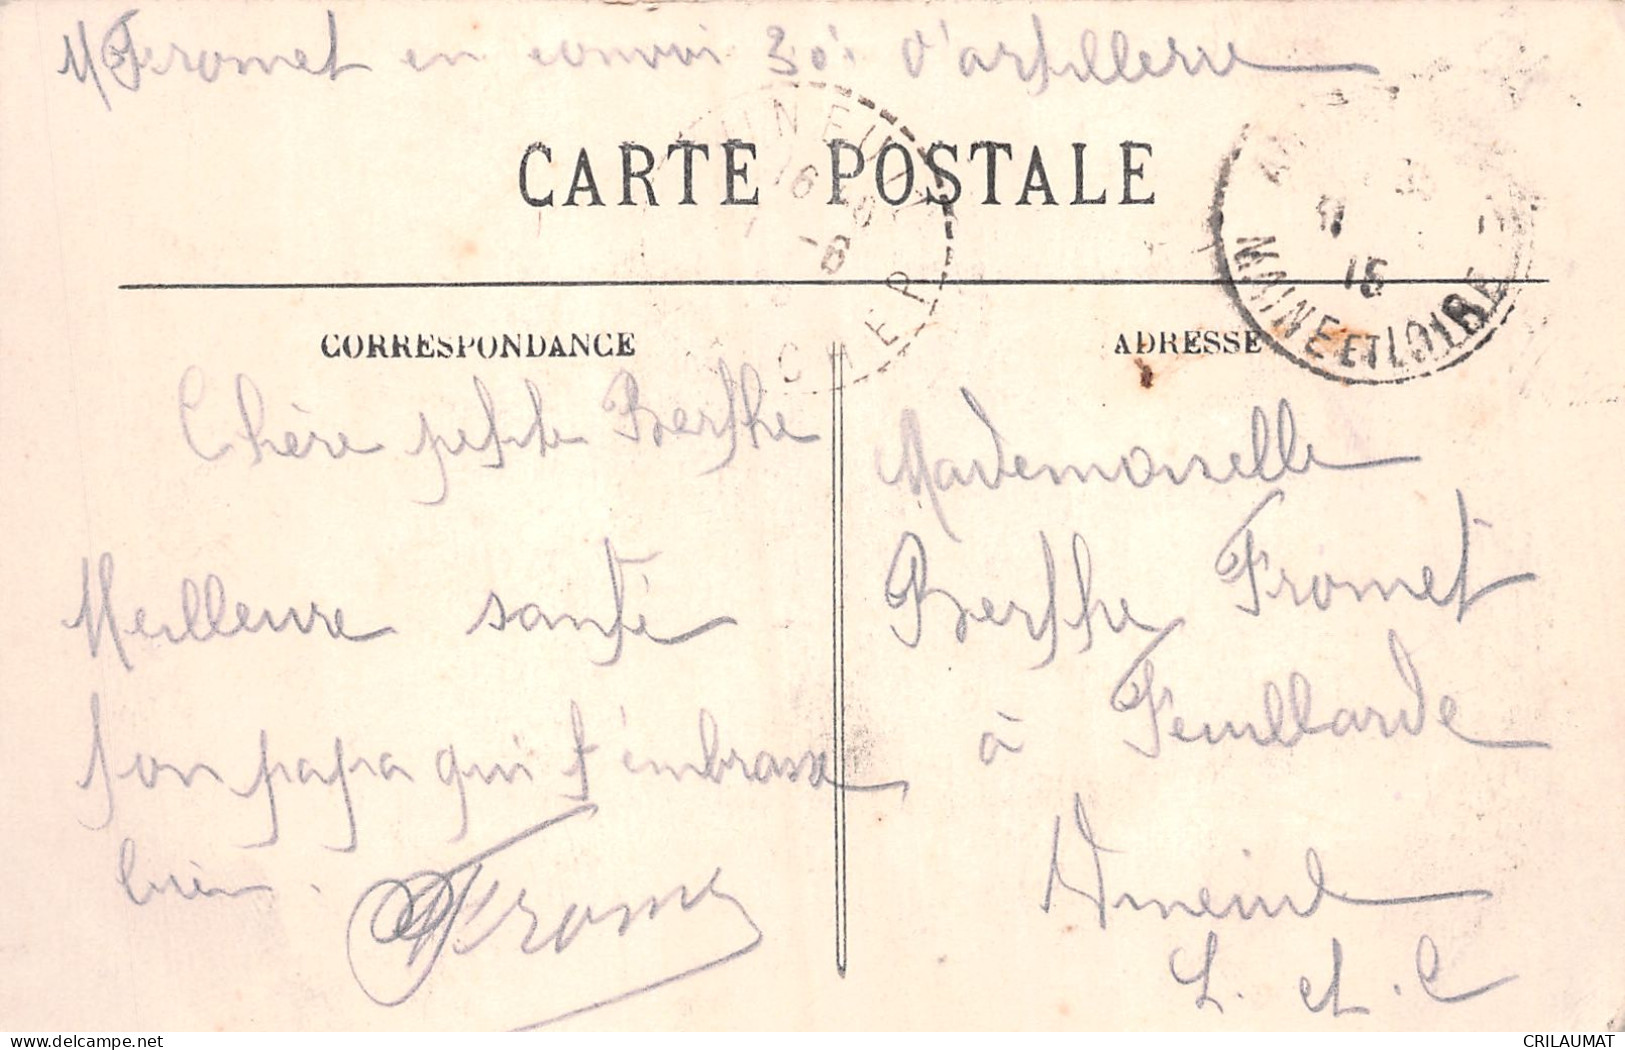 M Fromet en convoi 30e d'artillerie
CARTE POSTALE
16
-6
CHER
15
MAINE ET LOIRE
CORRESPONDANCE
ADRESSE
Chère petite Berthe
Meilleure santé
Ton papa qui t'embrasse
bien.
Fromet
Mademoiselle
Berthe Fromet
à Feuillarde
L. et. C
CRILAUMAT